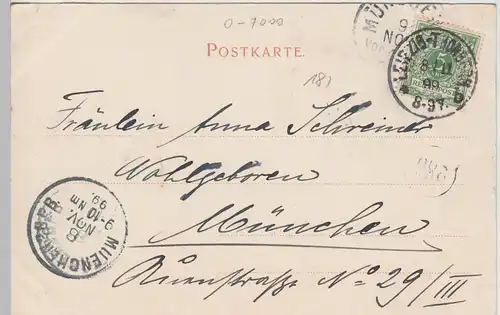 0-7000
POSTKARTE.
MÜN
9
NOV
LEIPZIG-THOM
8.11
99
8-9V.
5
181
Fräulein Anna Schreiner
Wohlgeboren
München
No 29/III
MUENCHEN
8
NOV.
9-10 Nm
99.